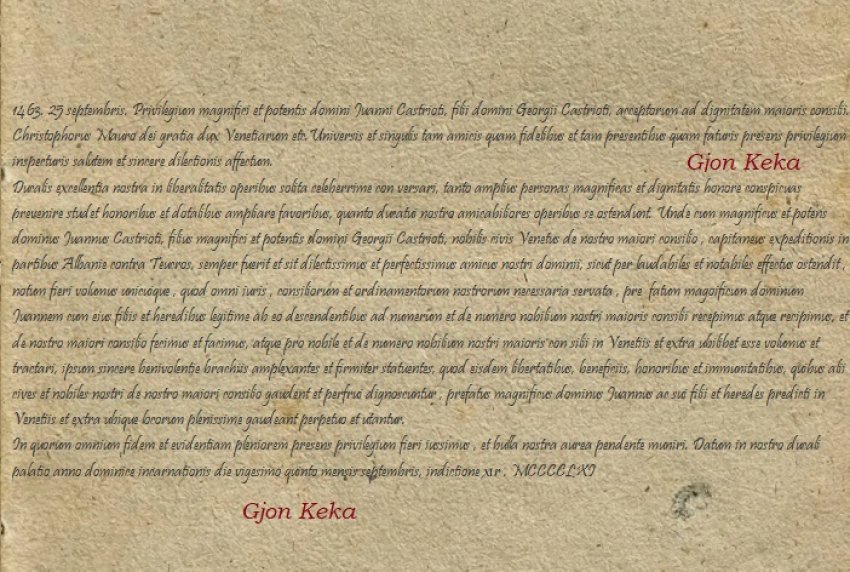 1463. 25 septembris. Privilegium magnifici et potentis domini Juanni Castrioti, filii domini Georgii Castrioti, acceptorum ad dignitatem maioris consilii.
Christophorus Mauro dei gratia dux Venetiarum etc. Universis et singulis tam amicis quam fidelibus et tam presentibus quam futuris presens privilegium
inspecturis salutem et sincere dilectionis affectum.
Gjon Keka
Ducalis excellentia nostra in liberalitatis operibus solita celeberrime con versari, tanto amplius personas magnificas et dignitatis honore conspicuas
prevenire studet honoribus et dotalibus ampliare favoribus, quanto ducatui nostro amicabiliores operibus se ostendunt. Unde cum magnificus et potens
dominus Juannus Castrioti, filius magnifici et potentis domini Georgii Castrioti, nobilis civis Venetus de nostro maiori consilio , capitaneus expeditionis in
partibus Albanie contra Teucros, semper fuerit et sit dilectissimus et perfectissimus amicus nostri dominii, sicut per laudabiles et notabiles effectus ostendit ,
notum fieri volumus unicuique , quod omni iuris , consiliorum et ordinamentorum nostrorum necessaria servata , pre fatum magnificum dominum
Juannem cum eius filiis et heredibus legitime ab eo descendentibus ad numerum et de numero nobilium nostri maioris consilii recepimus atque recipimus, et
de nostro maiori consilio fecimus et facimus, atque pro nobile et de numero nobilium nostri maioris con silii in Venetiis et extra ubilibet esse volumus et
tractari, ipsum sincere benivolentie brachiis amplexantes et firmiter statuentes, quod eisdem libertatibus, beneficiis, honoribus et immunitatibus, quibus alii
cives et nobiles nostri de nostro maiori consilio gaudent et perfrui dignoscuntur , prefatus magnificus dominus Juannus ac sui filii et heredes predicti in
Venetiis et extra ubique locorum plenissime gaudeant perpetuo et utantur.
In quorum omnium fidem et evidentiam pleniorem presens privilegium fieri iussimus , et bulla nostra aurea pendente muniri. Datum in nostro ducali
palatio anno dominice incarnationis die vigesimo quinto mensis septembris, indictione xır . MCCCCLXI
Gjon Keka